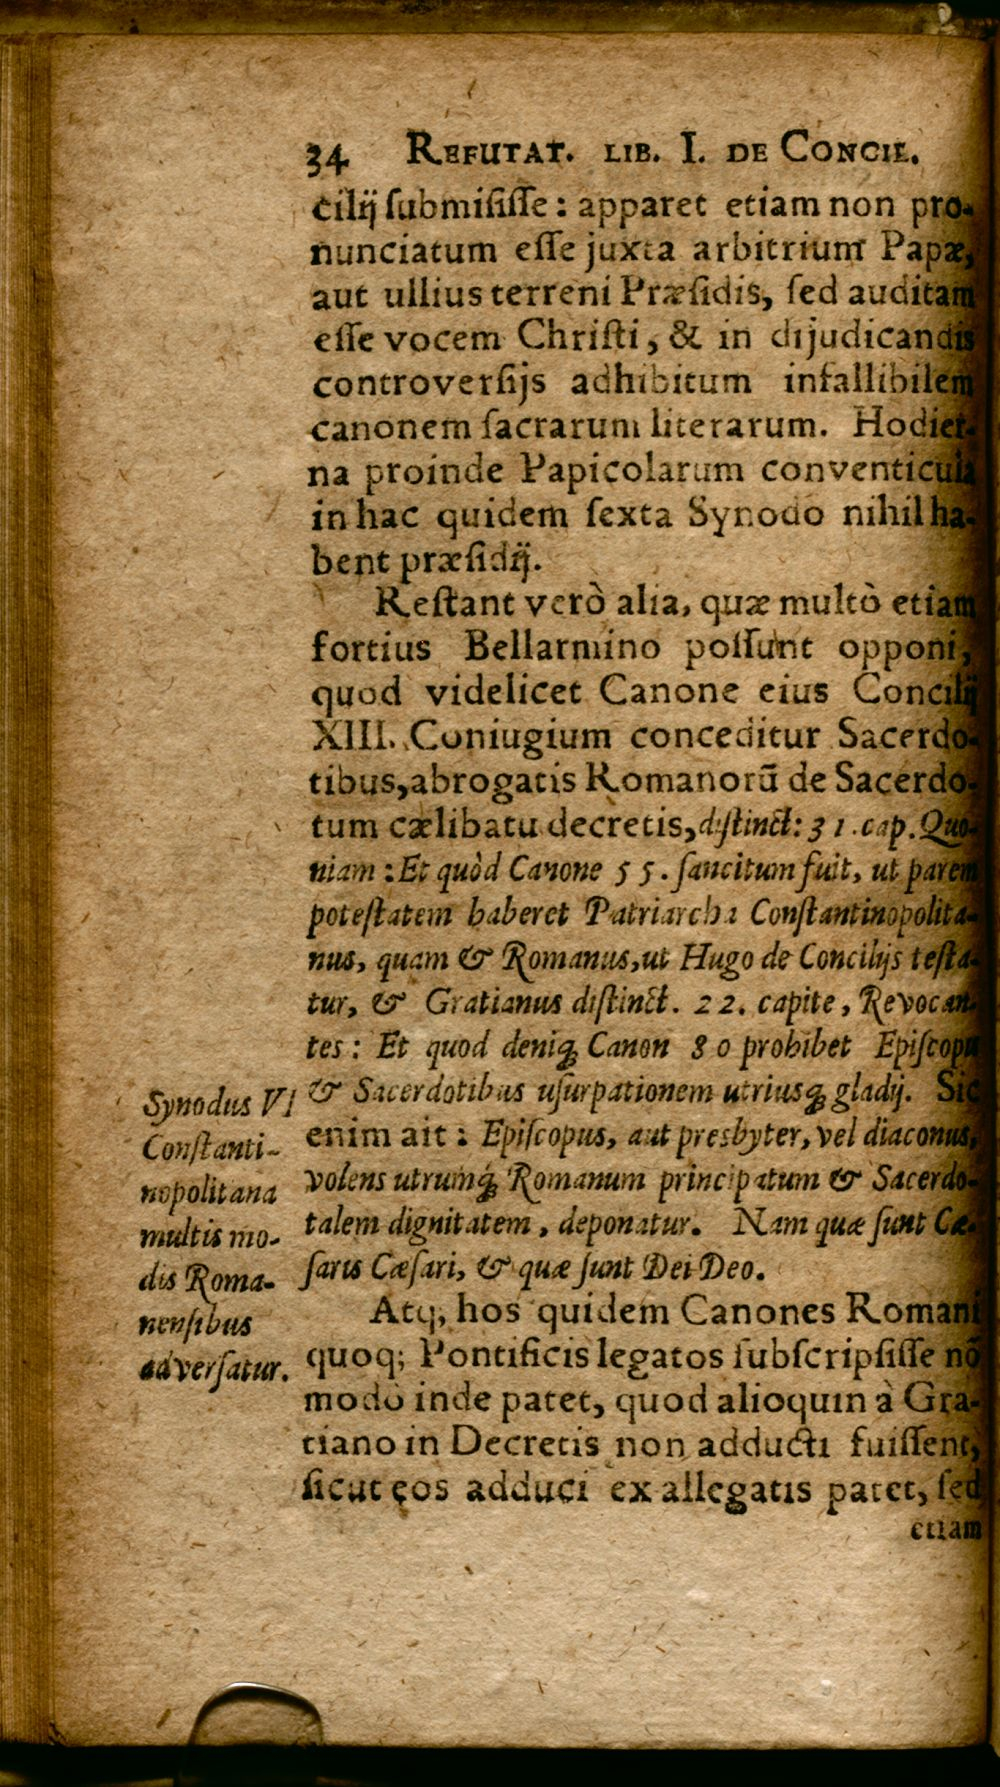 34 REFUTAT. LIB. I. DE CONCIL.
cilij ſubmiſiſſe: apparet etiam non pro-
nunciatum eſſe juxta arbitrium Papæ,
aut ullius terreni Præſidis, ſed auditam
eſſe vocem Chriſti, & in dijudicandis
controverſijs adhibitum infallibilem
canonem ſacrarum literarum. Hodier-
na proinde Papicolarum conventicula
in hac quidem ſexta Synodo nihil ha-
bent præſidij.
Reſtant verò alia, quæ multò etiam
fortius Bellarmino poſſunt opponi,
quod videlicet Canone eius Concilij
XIII. Coniugium conceditur Sacerdo-
tibus, abrogatis Romanorū de Sacerdo-
tum cælibatu decretis, diſtinct: 31. cap. Quo-
niam: Et quòd Canone 55. ſancitum fuit, ut parem
poteſtatem haberet Patriarcha Conſtantinopolita-
nus, quam & Romanus, ut Hugo de Concilijs teſta-
tur, & Gratianus diſtinct. 22. capite, Revocan-
tes: Et quod deniq́ue Canon 80 prohibet Epiſcopis
& Sacerdotibus uſurpationem utriusq́ue gladij. Sic
enim ait: Epiſcopus, aut presbyter, vel diaconus,
volens utrumq́ue Romanum principatum & Sacerdo-
talem dignitatem, deponatur. Nam quæ ſunt Cæ-
ſaris Cæſari, & quæ ſunt Dei Deo.
Synodus VI
Conſtanti-
nopolitana
multis mo-
dis Roma-
nenſibus
adverſatur.
Atq; hos quidem Canones Romani
quoq; Pontificis legatos ſubſcripſiſſe nō
modò inde patet, quod alioquin à Gra-
tiano in Decretis non adducti fuiſſent,
ſicut eos adduci ex allegatis patet, ſed
etiam